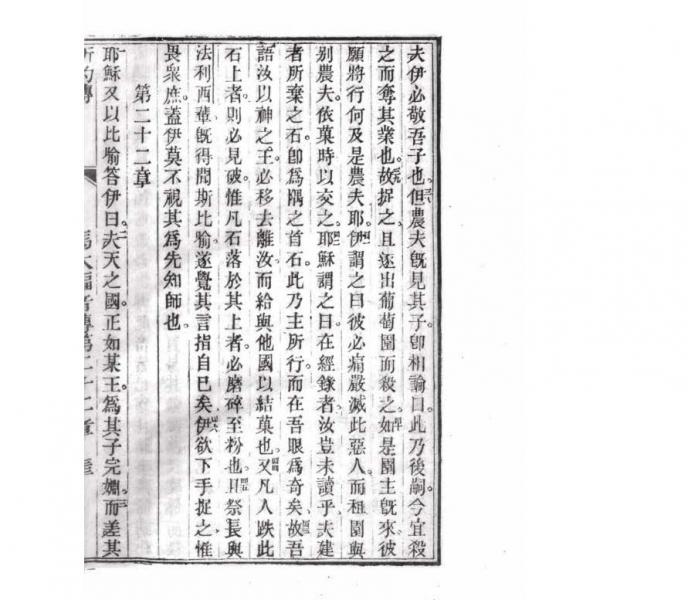 夫伊必敬吾子也。但農夫旣見其子。卽相論曰。此乃後嗣。今宜殺
之而奪其業也。故捉之。且逐出葡萄園而殺之。如是園主旣來彼
願將行何及是農夫耶。伊謂之曰彼必痛嚴滅此惡人。而租園與
别農夫依菓時以交之。耶穌謂之曰在經錄者汝豈未讀乎夫建
者所棄之石卽爲隅之首石。此乃主所行而在吾眼爲奇矣。故吾
語汝以神之王必移去離汝而給與他國以結菓也。又凡人跌此
石上者則必見破惟凡石落於其上者必磨碎至粉也。且祭長與
法利西輩旣得聞斯比喻遂覺其言指自己矣伊欲下手捉之惟
畏衆庶蓋伊莫不視其爲先知師也。
第二十二章
耶穌又以比喻答伊曰。夫天之國正如某王。爲其子完婚。而差其
馬太福音傳第二十二章